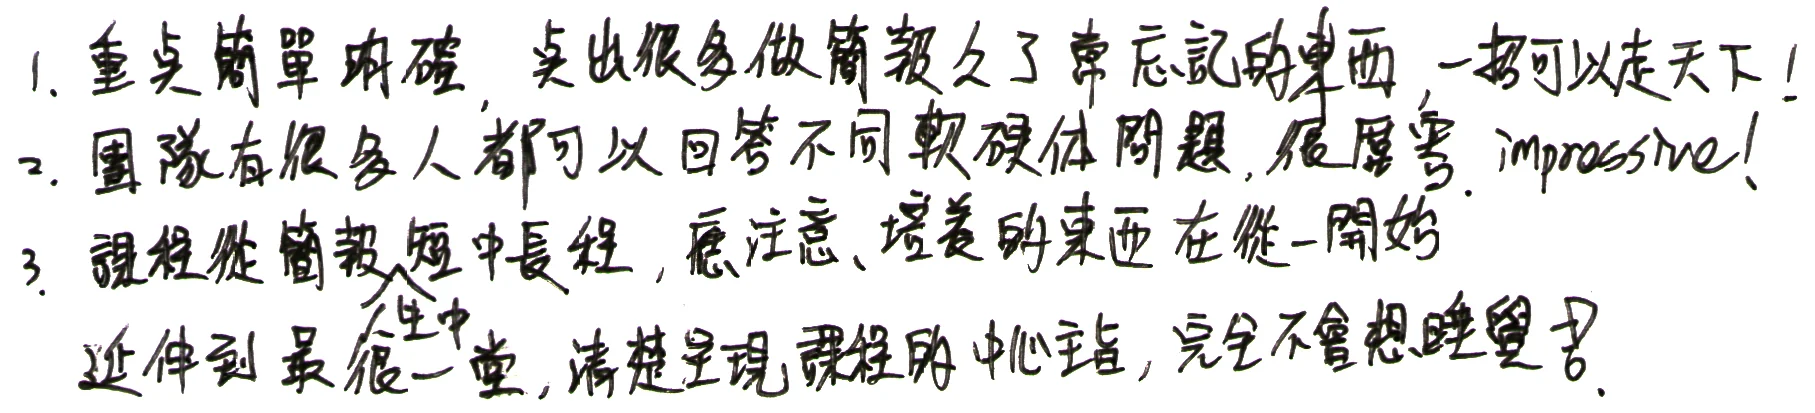 1. 重点簡單明確, 点出很多做簡報久了常忘記的東西, 一招可以走天下!
2. 團隊有很多人都可以回答不同軟硬体問題, 很厲害. impressive!
3. 課程從簡報人生中短中長程, 應注意、培養的東西在從一開始
延伸到最後一堂, 清楚呈現課程的中心主旨, 完全不會想睡覺